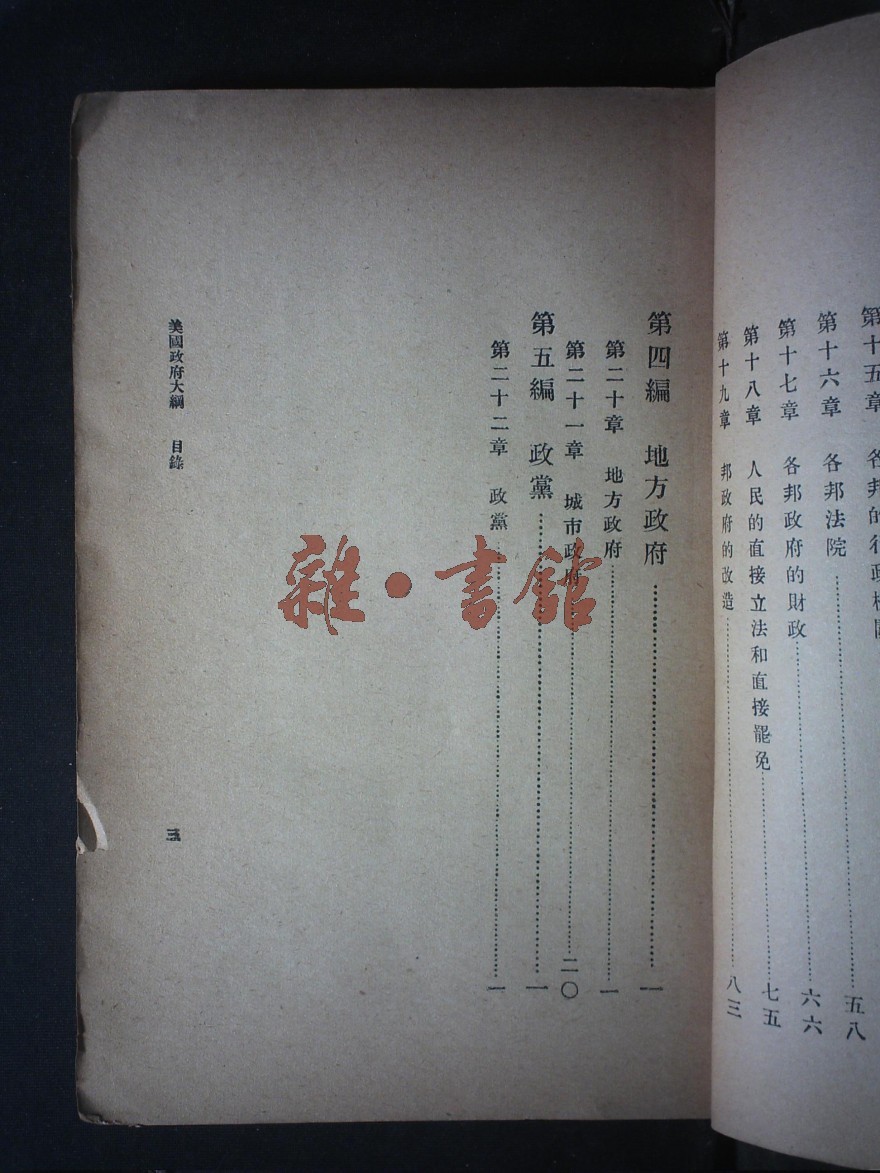 第十五章 各邦的行政機關
第十六章 各邦法院 五八
第十七章 各邦政府的財政 六六
第十八章 人民的直接立法和直接罷免 七五
第十九章 邦政府的改造 八三
第四編 地方政府 一
第二十章 地方政府 一
第二十一章 城市政府 二〇
第五編 政黨 一
第二十二章 政黨 一
美國政府大綱 目錄
三
雜·書館